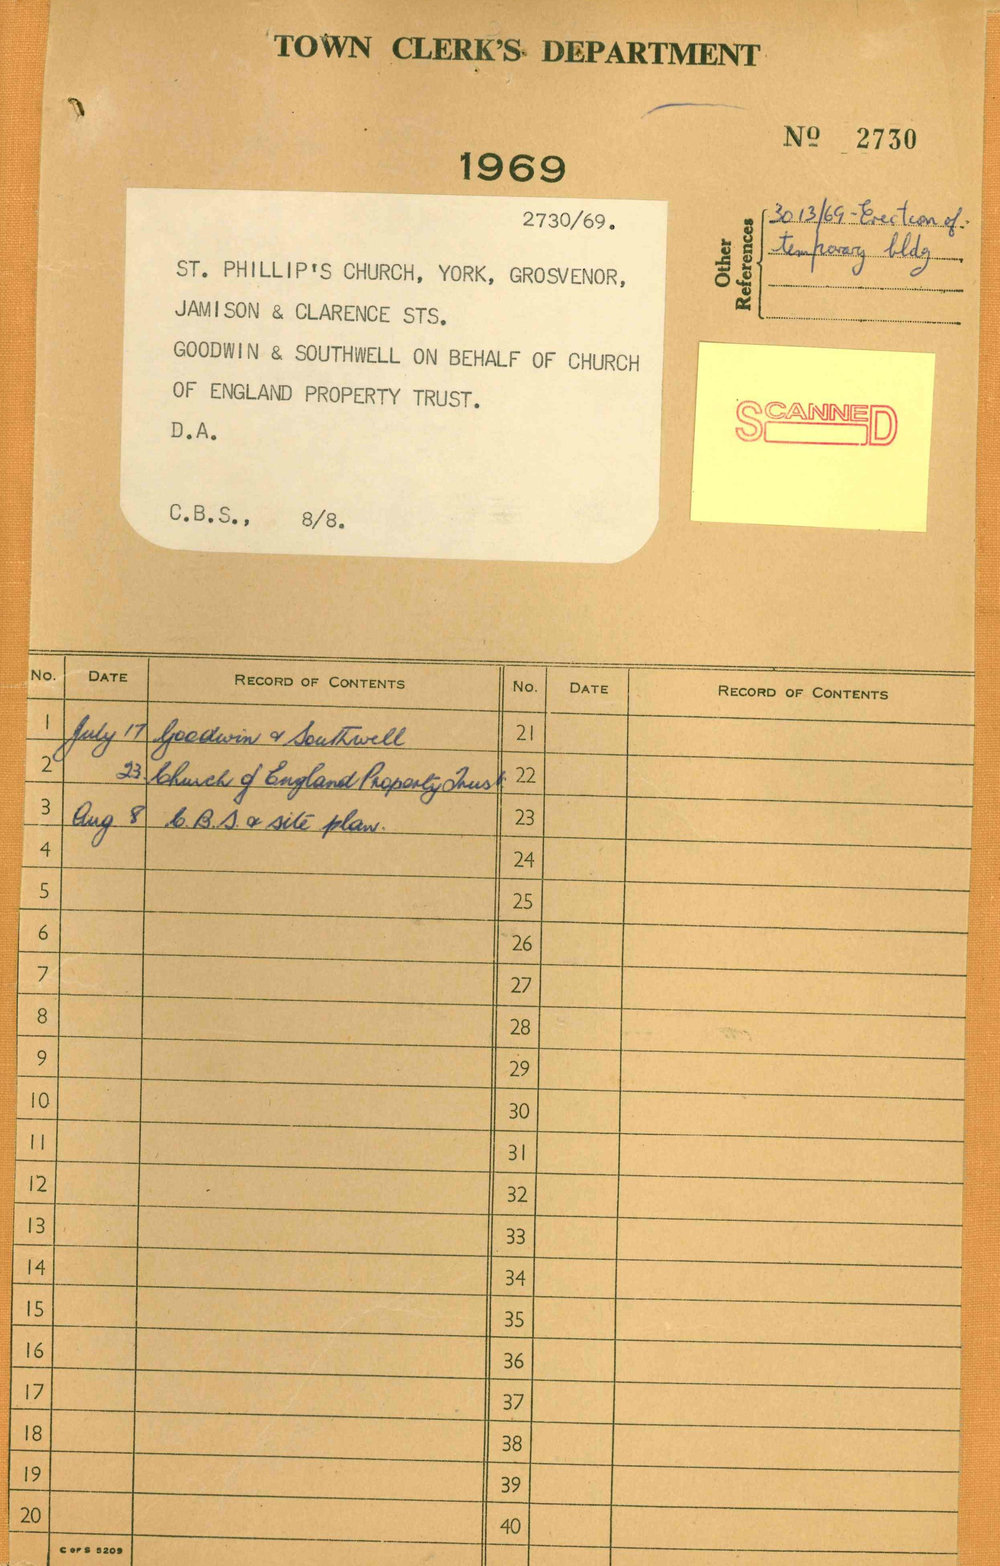 TOWN CLERK'S DEPARTMENT
Nº 2730
1969
2730/69.
ST. PHILLIP'S CHURCH, YORK, GROSVENOR,
JAMISON & CLARENCE STS.
GOODWIN & SOUTHWELL ON BEHALF OF CHURCH
OF ENGLAND PROPERTY TRUST.
D.A.
C.B.S., 8/8.
Other
References
3013/69 - Erection of
temporary bldg
SCANNED
No. DATE RECORD OF CONTENTS No. DATE RECORD OF CONTENTS
1 July 17 Goodwin & Southwell 21
2 23. Church of England Property Trust. 22
3 Aug 8 C.B.S. & site plan. 23
4 24
5 25
6 26
7 27
8 28
9 29
10 30
11 31
12 32
13 33
14 34
15 35
16 36
17 37
18 38
19 39
20 40
C OF S 5209